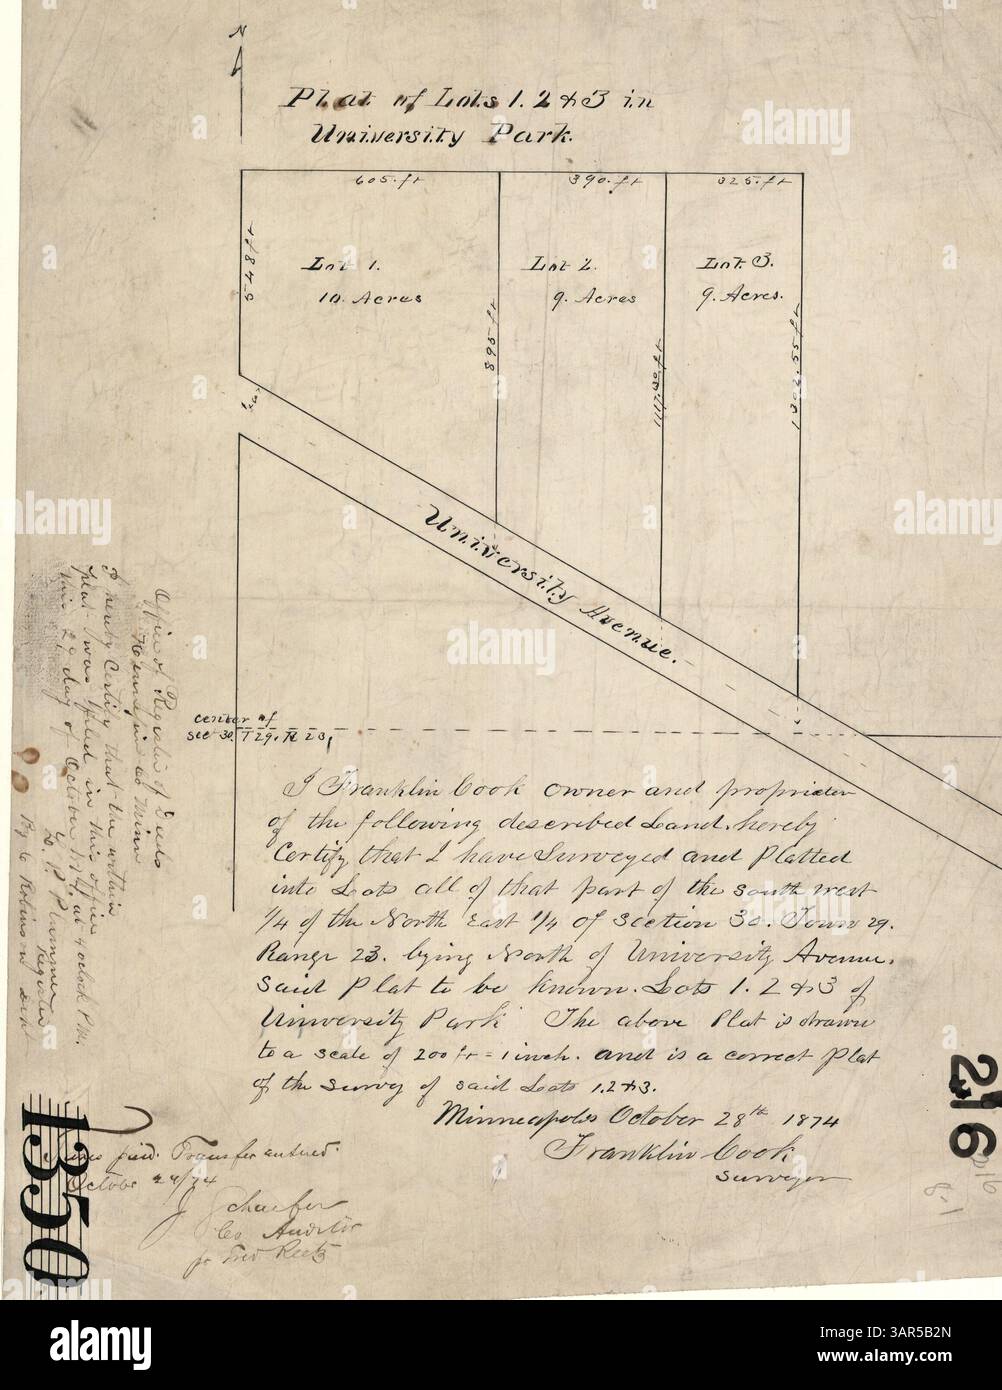 N
Plat of Lots 1. 2 & 3 in
University Park.
605. ft
390. ft
325. ft
548 ft
Lot 1.
10. Acres
Lot 2.
9. Acres
Lot 3.
9. Acres.
865 ft
1117.30 ft
1302.55 ft
University Avenue.
center of
sec 30. T 29. R 23,
I Franklin Cook owner and proprietor
of the following described Land, hereby
Certify that I have Surveyed and Platted
into Lots all of that part of the south west
1/4 of the North East 1/4 of section 30. Town 29.
Range 23. lying North of University Avenue.
Said Plat to be known. Lots 1. 2 & 3 of
University Park The above Plat is drawn
to a scale of 200 ft = 1 inch. and is a correct Plat
of the survey of said Lots 1.2 & 3.
Minneapolis October 28th 1874
Franklin Cook
Surveyor
Office of Register of Deeds
Hennepin Co Minn
I hereby Certify that the within
plat was filed in this office
this 29 day of October at 4 oclock P.M.
Plummer
Register
By G Robinson Dept
paid. Transfer entered.
October 29/74
J Schaefer
Co Auditor
pr Fred Reetz
1350
216
8-1
alamy
Image ID: 3AR5B2N
www.alamy.com